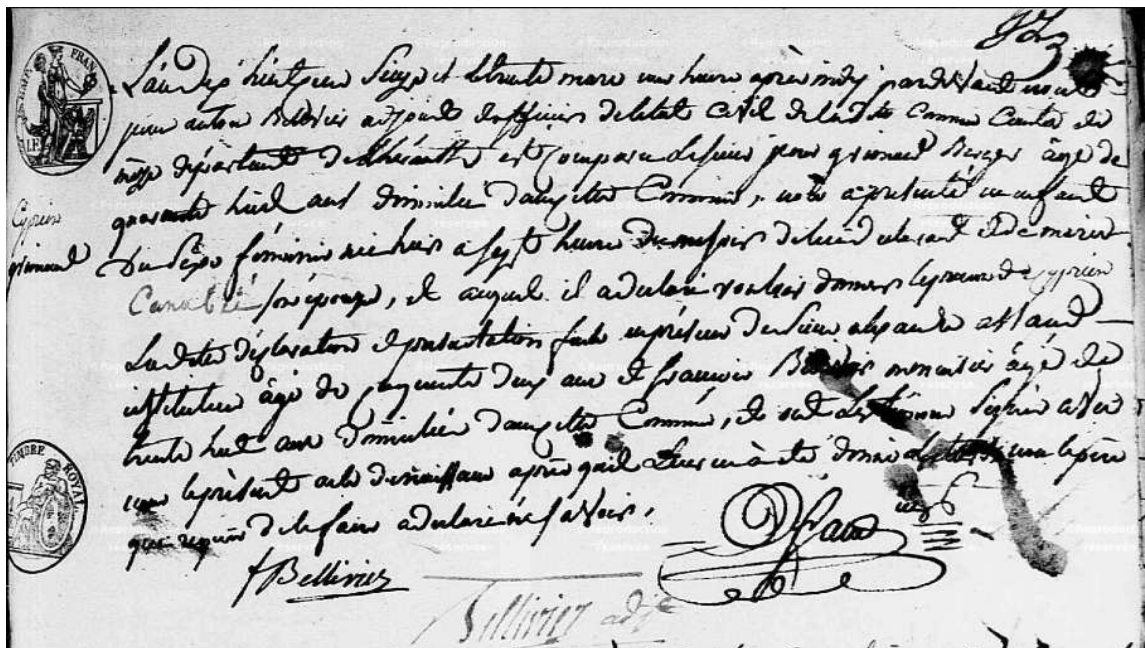 L'an dix huit cent Seize et le trente mars une heure après midy pardevant nous
adjoint d'officier de l'état Civil de la dite Commune Canton de
mèze département de l'hérault est Comparu Lesieur pierre grimaud Berger âgé de
quarante huit ans domicilié dans cette Commune, nous a présenté un enfant
Du Sèxe féminin né hier a sept heure du soir de lui déclarant et De marie
son épouse, et auquel il a déclaré vouloir donner le prénom de Cyprien
La dite déclaration et présentation faite en présence de Sieur alexandre
instituteur âgé de cinquante deux ans et françois Bellivier menuisier âgé de
trente huit ans domiciliés dans cette Commune, et ont Les témoins Signé avec
nous le présent acte de naissance après qu'il Leur en a été donné Lecture le père
que requis de le faire a déclaré ne savoir.
Cyprien
grimaud
TIMBRE ROYAL
fBellivier
Bellivier adjt